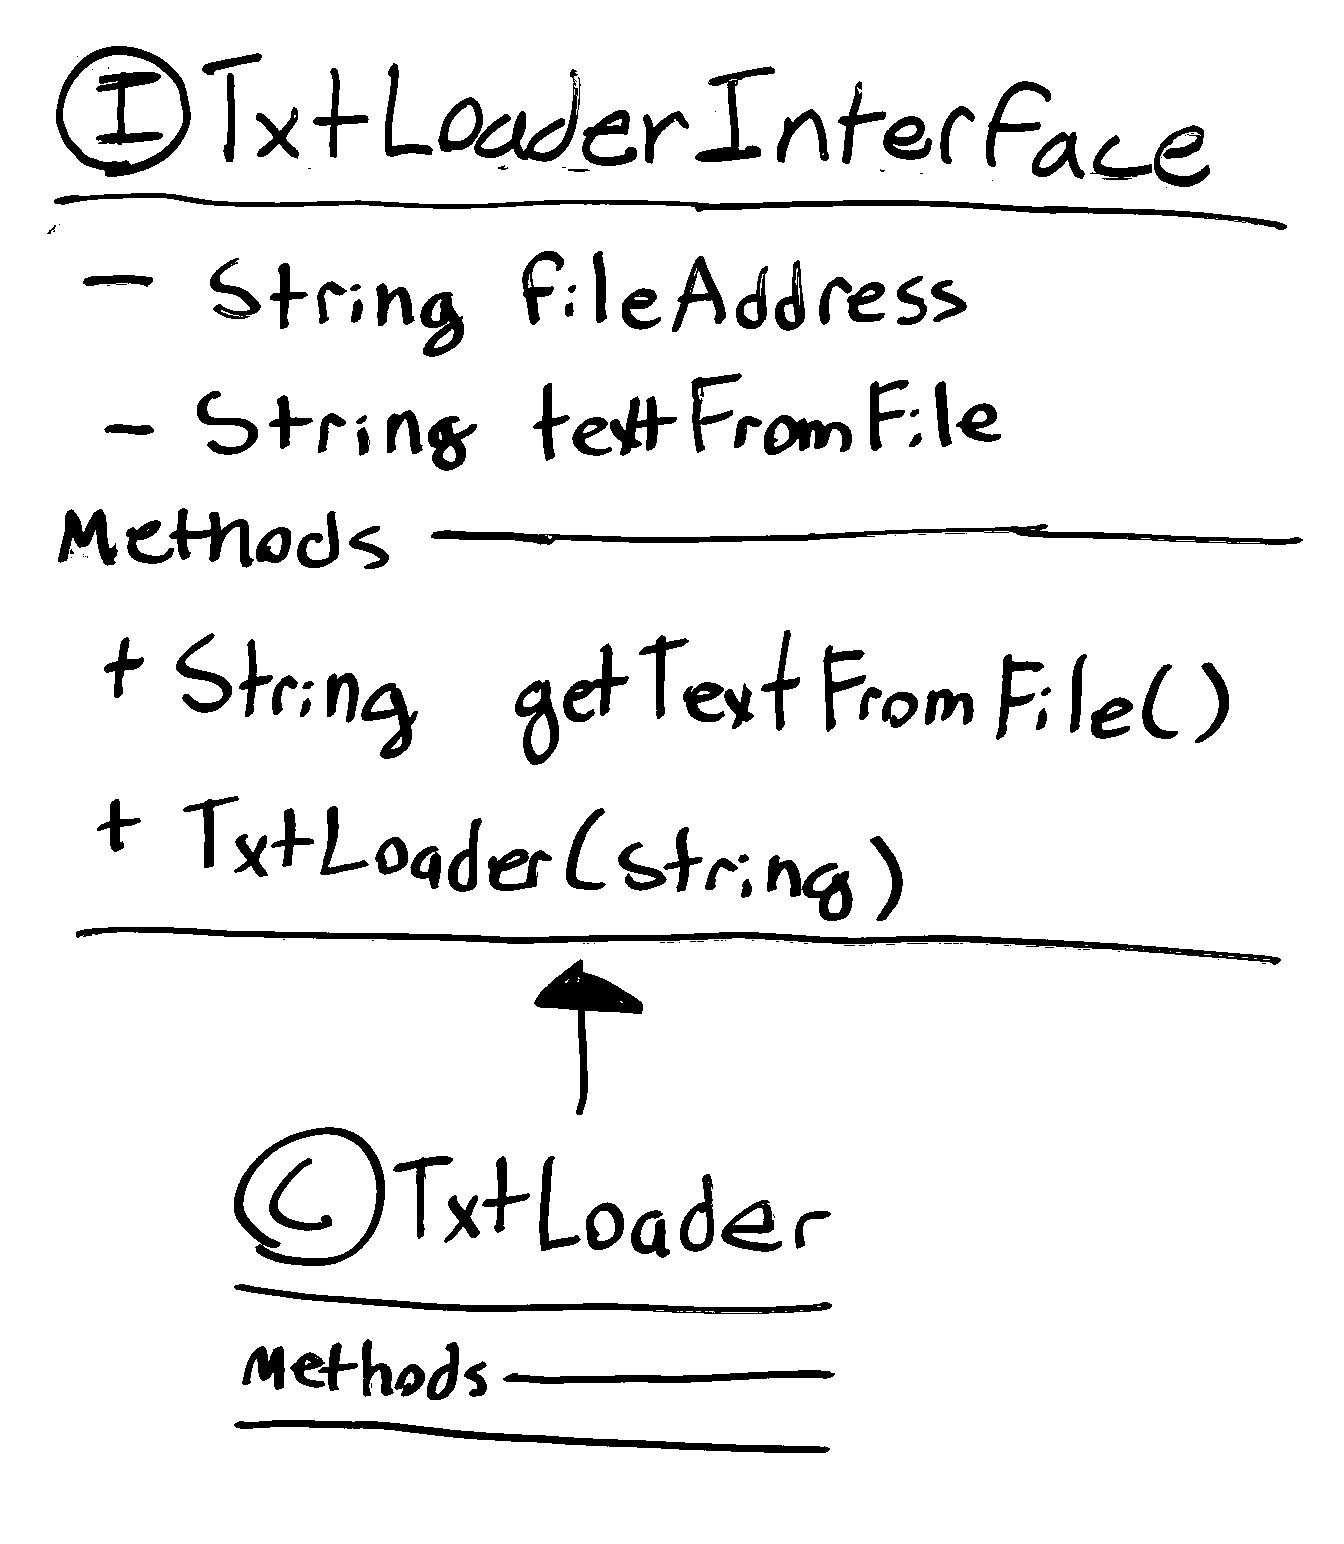 I TxtLoaderInterface
- String fileAddress
- String textFromFile
Methods
+ String getTextFromFile()
+ TxtLoader(string)
C TxtLoader
Methods